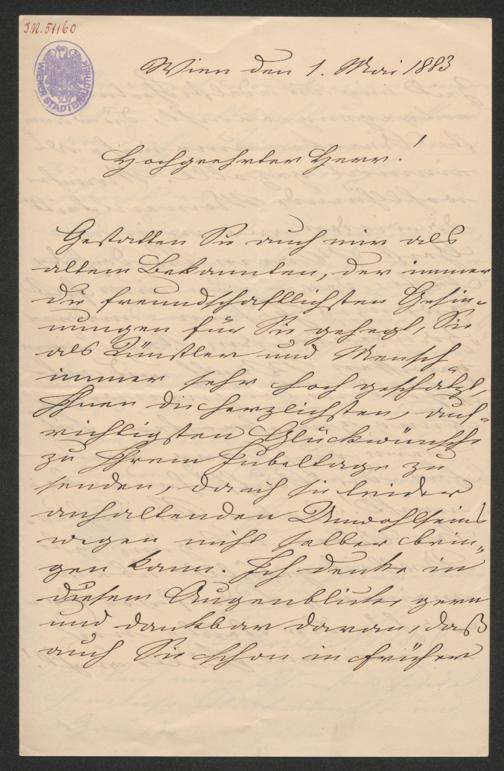 J.N. 51160
WIENER STADTBIBLIOTHEK
Wien den 1. Mai 1883
Hochgeehrter Herr!
Gestatten Sie auch mir als
altem Bekannten, der immer
die freundschaftlichsten Gesin-
nungen für Sie gehegt, Sie
als Künstler und Mensch
immer sehr hoch geschätzt,
Ihnen die herzlichsten, auf-
richtigsten Glückwünsche
zu Ihrem Jubeltage zu
senden, da ich sie leider
anhaltenden Unwohlseins
wegen nicht selber brin-
gen kann. Ich denke in
diesem Augenblicke gern
und dankbar daran, daß
auch Sie schon in früher